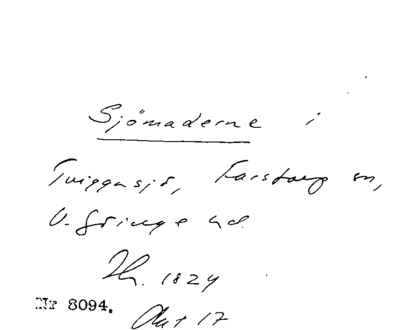 Sjömaderne i
Tviggasjö, Farstorp sn,
V. Göinge hd.
1824
Nr 8094.
Akt 17